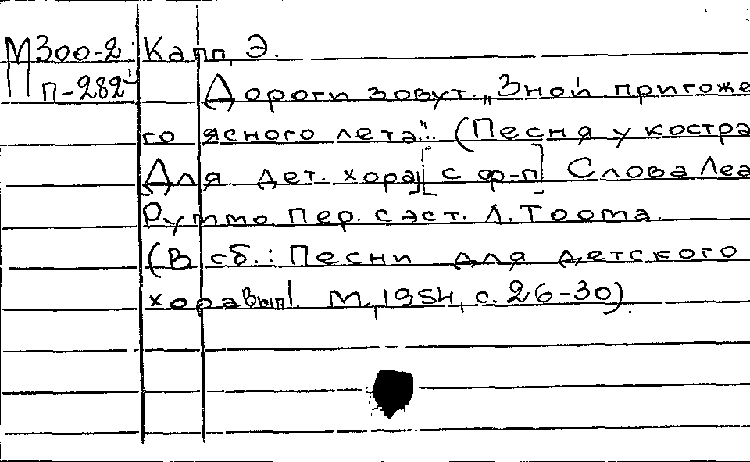 М300-2 Капп, Э.
П-282 Дороги зовут. "Зной пригоже
го ясного лета". (Песня у костра
Для дет. хора [с ф-п] Слова Леа
Руммо Пер. с эст. Л. Тоома.
(В сб.: Песни для детского
хора Вып1. М., 1954, с. 26-30)